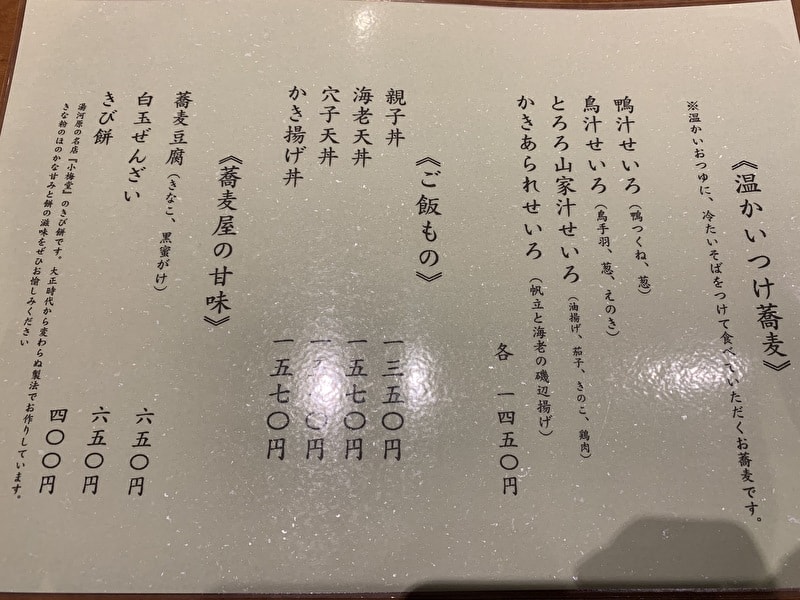 《温かいつけ蕎麦》
※温かいおつゆに、冷たいそばをつけて食べていただくお蕎麦です。
鴨汁せいろ（鴨つくね、葱）
鳥汁せいろ（鳥手羽、葱、えのき）
とろろ山家汁せいろ（油揚げ、茄子、きのこ、鶏肉）
かきあられせいろ（帆立と海老の磯辺揚げ）
各 一四五〇円
《ご飯もの》
親子丼 一三五〇円
海老天丼 一五七〇円
穴子天丼 一五七〇円
かき揚げ丼 一五七〇円
《蕎麦屋の甘味》
蕎麦豆腐（きなこ、黒蜜がけ） 六五〇円
白玉ぜんざい 六五〇円
きび餅 四〇〇円
湯河原の名店『小梅堂』のきび餅です。大正時代から変わらぬ製法でお作りしています。
きな粉のほのかな甘みと餅の滋味をぜひお愉しみください